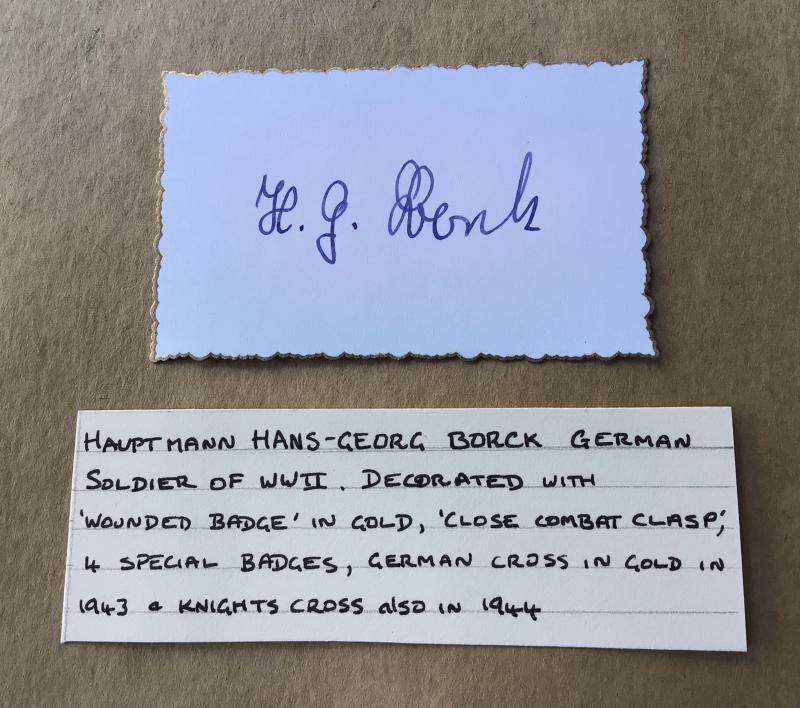 H. G. Borck
HAUPTMANN HANS-GEORG BORCK GERMAN
SOLDIER OF WWII. DECORATED WITH
'WOUNDED BADGE' IN GOLD, 'CLOSE COMBAT CLASP',
4 SPECIAL BADGES, GERMAN CROSS IN GOLD IN
1943 & KNIGHTS CROSS also IN 1944